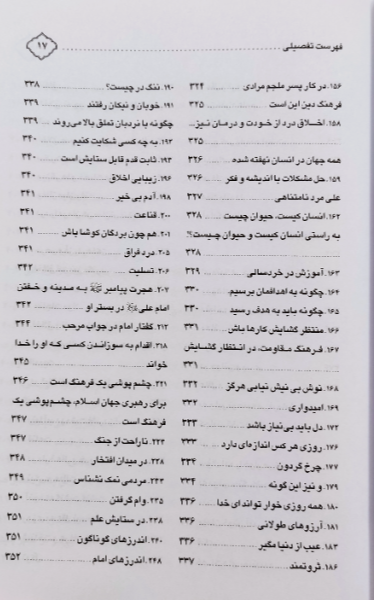 فهرست تفصیلی
۱۷
۱۵۶. در کار پسر ملجم مرادی ۳۲۴
فرهنگ دین این است ۳۲۵
۱۵۸. اخـلاق درد از خـودت و درمـان نیـز...
۳۲۵
همه جهان در انسان نهفته شده ۳۲۶
۱۵۹. حل مشکلات با اندیشه و فکر ۳۲۶
علی مرد نامتناهی ۳۲۷
۱۶۲. انسان کیست، حیوان چیست ۳۲۸
به راستی انسان کیست و حیوان چیست؟
۳۲۸
۱۶۳. آموزش در خردسالی ۳۲۹
۱۶۴. چگونه به اهدافمان برسیم ۳۳۰
۱۶۵. چگونه باید به هدف رسید ۳۳۰
۱۶۶. منتظر گشایش کارها باش ۳۳۱
۱۶۷. فـرهنگ مقـاومت، در انتظـار گشـایش
۳۳۱
۱۶۸. نوش بی نیش نیابی هرگز ۳۳۲
۱۶۹. امیدواری ۳۳۲
۱۷۳. دل باید بی‌نیاز باشد ۳۳۳
۱۷۶. روزی هر کس اندازه‌ای دارد ۳۳۳
۱۷۷. چرخ گردون ۳۳۴
۱۷۹. و نیز این گونه ۳۳۴
۱۸۰. همه روزی خوار توانه‌ای خدا ۳۳۶
۱۸۱. آرزوهای طولانی ۳۳۶
۱۸۳. عیب از دنیا مگیر ۳۳۶
۱۸۶. ثروتمند ۳۳۷
۱۹۰. ننگ در چیست؟ ۳۳۸
۱۹۱. خوبان و نیکان رفتند ۳۳۹
چگونه با نردبان تملق بالا می‌روند ۳۳۹
۱۹۳. به چه کسی شکایت کنیم ۳۴۰
۱۹۵. ثابت قدم قابل ستایش است ۳۴۰
۱۹۶. زیبایی اخلاق ۳۴۰
۱۹۸. آدم بی خیر ۳۴۱
۲۰۰. قناعت ۳۴۱
۲۰۱. هم چون بردگان کوشا باش ۳۴۱
۲۰۵. درد فراق ۳۴۱
۲۰۶. تسلیت ۳۴۲
۲۰۹. هجرت پیامبر ﷺ بـه مـدینه و خـفتن
امام علی در بستر او ۳۴۲
۲۱۲. گفتار امام در جواب مرحب ۳۴۴
۲۱۸. اقدام به سوزاندن کسی که او را خـدا
خواند ۳۴۵
۲۲۱. چشم پوشی یک فرهنگ است ۳۴۶
برای رهبری جهان اسلام، چشم‌پوشی یک
فرهنگ است ۳۴۷
۲۲۴. ناراحت از جنگ ۳۴۷
۲۲۸. در میدان افتخار ۳۴۸
۲۳۳. مردمی نمک نشناس ۳۴۹
۲۳۵. وام گرفتن ۳۵۰
۲۳۸. در ستایش علم ۳۵۱
۲۴۰. اندرزهای گوناگون ۳۵۱
۲۴۸. اندرزهای امام ۳۵۲